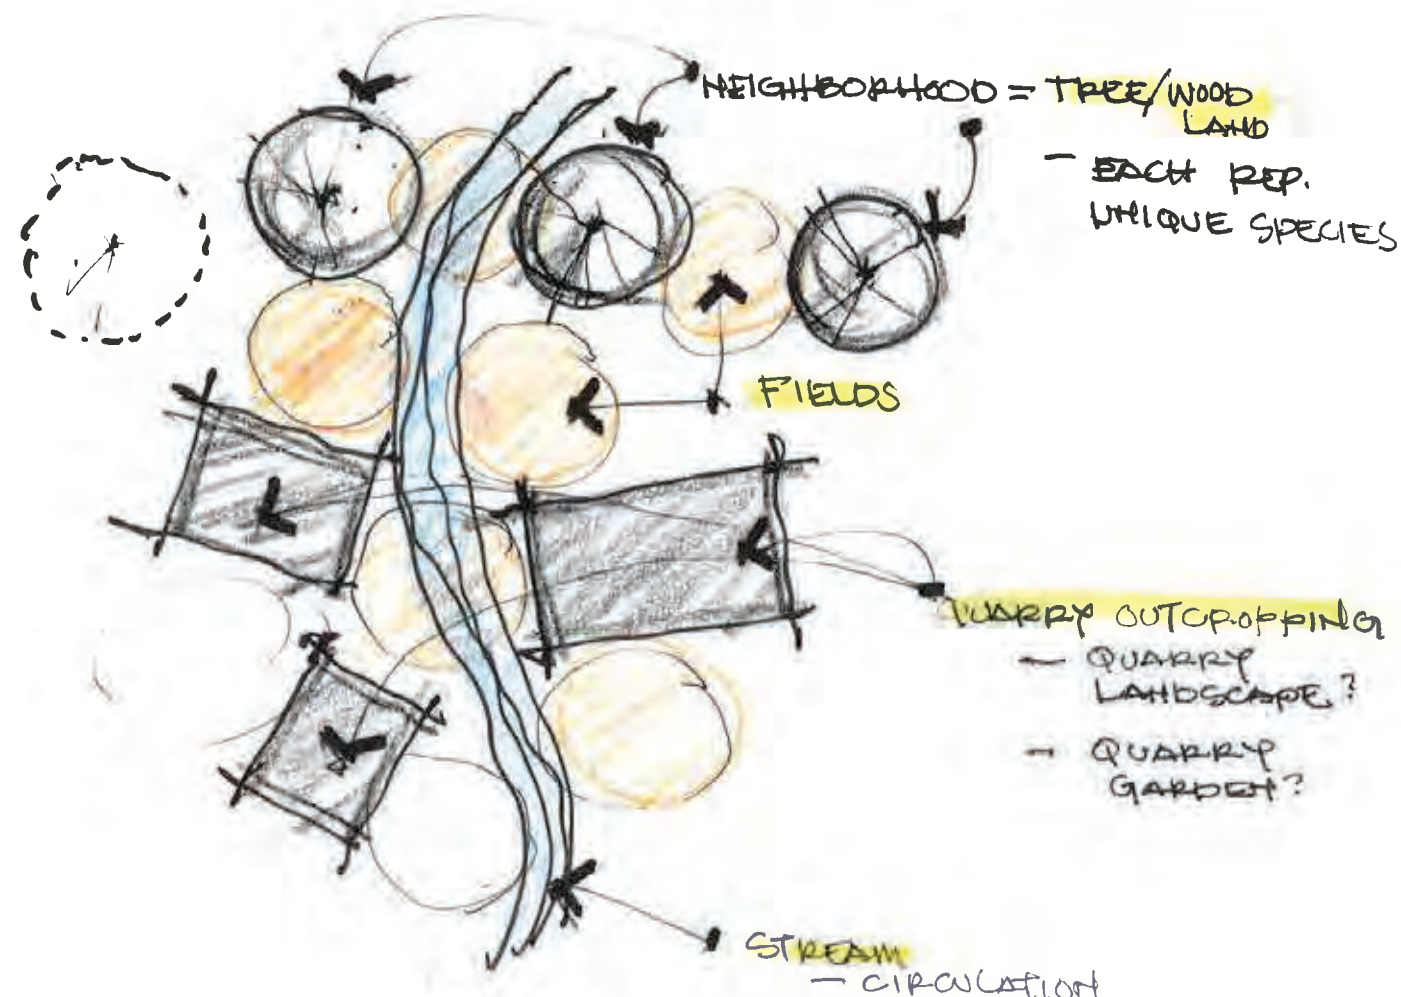 NEIGHBORHOOD = TREE/WOOD
LAND
- EACH REP.
UNIQUE SPECIES
FIELDS
QUARRY OUTCROPPING
- QUARRY
LANDSCAPE?
- QUARRY
GARDEN?
STREAM
- CIRCULATION